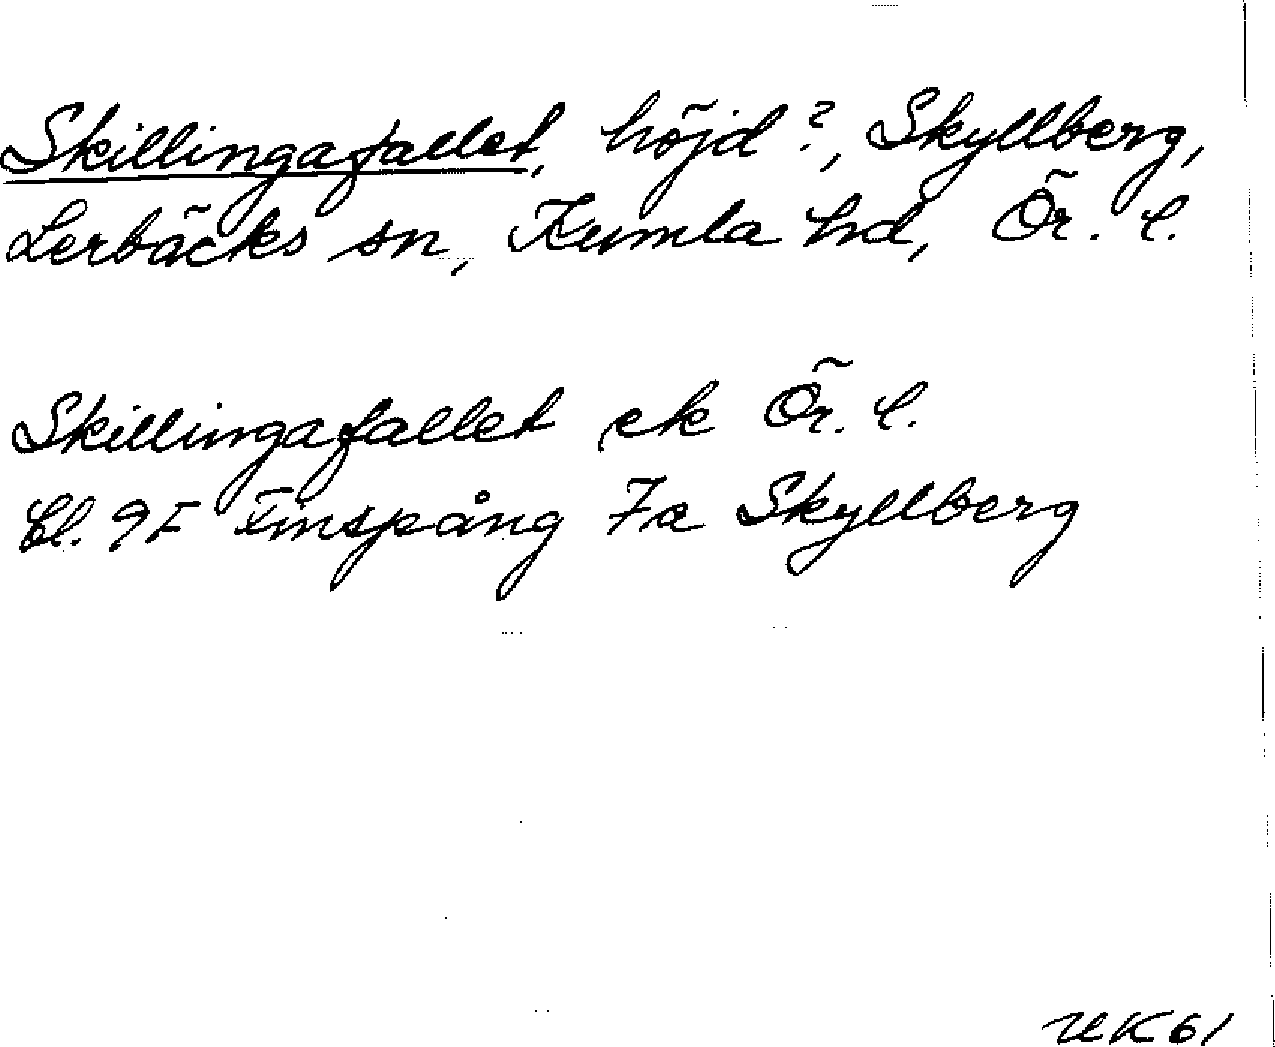 Skillingafallet, höjd?, Skyllberg,
Lerbäcks sn, Kumla hd, Ör. l.
Skillingafallet ek Ör. l.
bl. 9F Finspång 7a Skyllberg
UK61